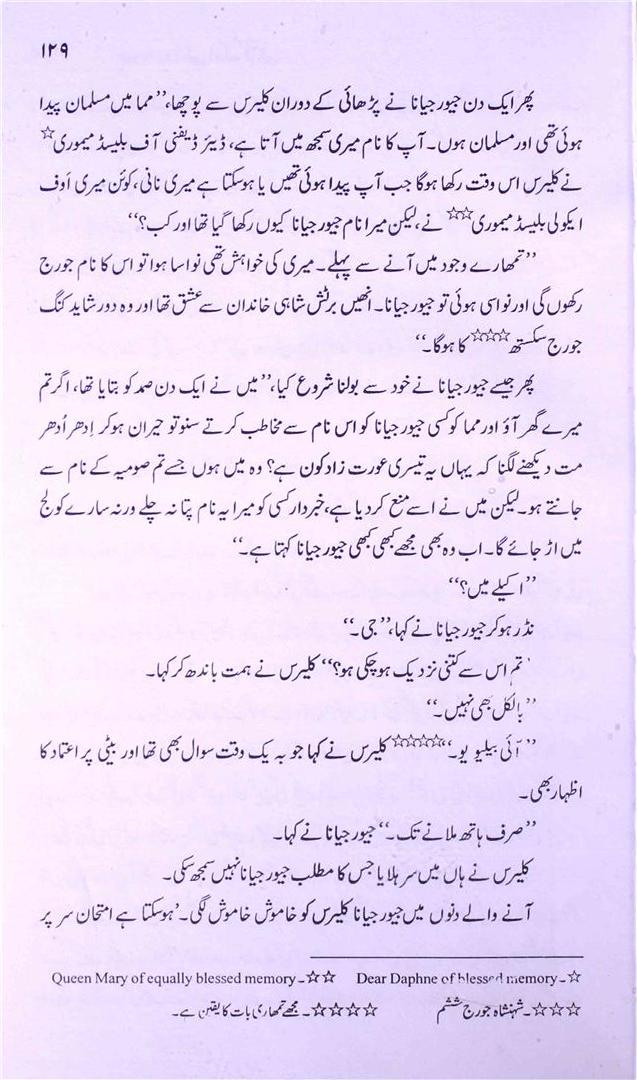 ۱۲۹
پھر ایک دن جیورجیانا نے پڑھائی کے دوران کلیرس سے پوچھا، ’’مما میں مسلمان پیدا
ہوئی تھی اور مسلمان ہوں۔ آپ کا نام میری سمجھ میں آتا ہے، ڈیئر ڈیفنی آف بلیسڈ میموری☆
نے کلیرس اس وقت رکھا ہوگا جب آپ پیدا ہوئی تھیں یا ہوسکتا ہے میری نانی، کوئن میری اَوف
ایکولی بلیسڈ میموری☆☆ نے، لیکن میرا نام جیورجیانا کیوں رکھا گیا تھا اور کب؟‘‘
’’تمھارے وجود میں آنے سے پہلے۔ میری کی خواہش تھی نواسا ہوا تو اس کا نام جورج
رکھوں گی اور نواسی ہوئی تو جیورجیانا۔ انھیں برٹش شاہی خاندان سے عشق تھا اور وہ دور شاید کنگ
جورج سکستھ☆☆☆ کا ہوگا۔‘‘
پھر جیسے جیورجیانا نے خود سے بولنا شروع کیا، ’’میں نے ایک دن صمد کو بتایا تھا، اگر تم
میرے گھر آؤ اور مما کو کسی جیورجیانا کو اس نام سے مخاطب کرتے سنو تو حیران ہوکر اِدھر اُدھر
مت دیکھنے لگنا کہ یہاں یہ تیسری عورت زاد کون ہے؟ وہ میں ہوں جسے تم صومیہ کے نام سے
جانتے ہو۔ لیکن میں نے اسے منع کردیا ہے، خبردار کسی کو میرا یہ نام پتا نہ چلے ورنہ سارے کولج
میں اڑ جائے گا۔ اب وہ بھی مجھے کبھی کبھی جیورجیانا کہتا ہے۔‘‘
’’اکیلے میں؟‘‘
نڈر ہوکر جیورجیانا نے کہا، ’’جی۔‘‘
’تم اس سے کتنی نزدیک ہوچکی ہو؟‘‘ کلیرس نے ہمت باندھ کر کہا۔
’’بالکل بھی نہیں۔‘‘
’’آئی بیلیو یو۔‘‘☆☆☆☆ کلیرس نے کہا جو بہ یک وقت سوال بھی تھا اور بیٹی پر اعتماد کا
اظہار بھی۔
’’صرف ہاتھ ملانے تک۔‘‘ جیورجیانا نے کہا۔
کلیرس نے ہاں میں سر ہلایا جس کا مطلب جیورجیانا نہیں سمجھ سکی۔
آنے والے دنوں میں جیورجیانا کلیرس کو خاموش خاموش لگی۔ ’ہوسکتا ہے امتحان سر پر
☆۔ Dear Daphne of blessed memory ☆☆۔ Queen Mary of equally blessed memory
☆☆☆۔ شہنشاہ جورج ششم ☆☆☆☆۔ مجھے تمھاری بات کا یقین ہے۔